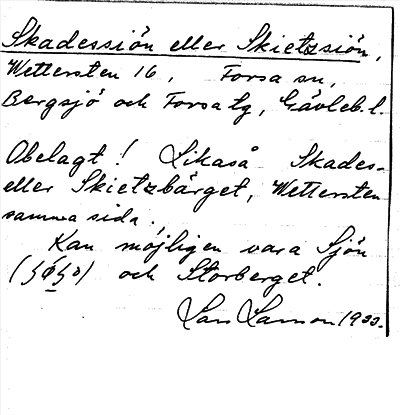 Skadessiön eller Skietzsiön,
Wettersten 16, Forsa sn,
Bergsjö och Forsa tg, Gävleb. l.
Obelagt! Likaså Skades-
eller Skietzbärget, Wettersten
samma sida.
Kan möjligen vara Sjön
och Storberget.
Lars Larsson 1933.